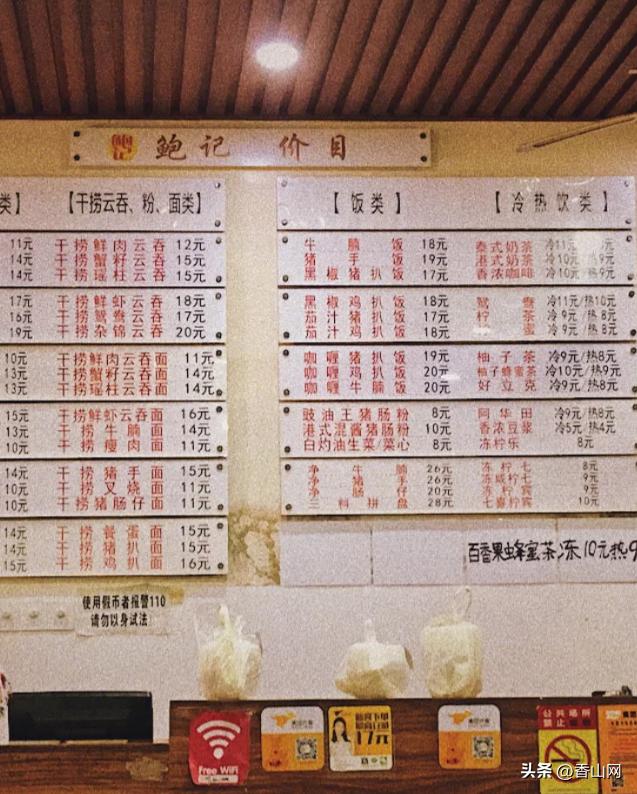 鲍记 价目
类】
11元
14元
14元
17元
16元
19元
10元
13元
13元
15元
13元
10元
14元
10元
10元
14元
14元
14元
【干捞云吞、粉、面类】
干捞鲜肉云吞 12元
干捞蟹籽云吞 15元
干捞瑶柱云吞 15元
干捞鲜虾云吞 18元
干捞鸳鸯云吞 17元
干捞杂锦云吞 20元
干捞鲜肉云吞面 11元
干捞蟹籽云吞面 14元
干捞瑶柱云吞面 14元
干捞鲜虾云吞面 16元
干捞牛腩面 14元
干捞瘦肉面 11元
干捞猪手面 15元
干捞叉烧面 11元
干捞猪肠仔面 11元
干捞餐蛋面 15元
干捞猪扒面 15元
干捞鸡扒面 16元
【饭类】
牛腩饭 18元
猪手饭 19元
黑椒猪扒饭 17元
黑椒鸡扒饭 18元
茄汁猪扒饭 17元
茄汁鸡扒饭 18元
咖喱猪扒饭 19元
咖喱鸡扒饭 20元
咖喱牛腩饭 20元
豉油王猪肠粉 8元
港式混酱猪肠粉 10元
白灼油生菜/菜心 8元
净牛腩 26元
净猪手 26元
净肠仔 20元
三料拼盘 28元
【冷热饮类】
泰式奶茶 冷11元
港式奶茶 冷10元 /热9元
香浓咖啡 冷10元 /热9元
鸳鸯 冷11元/热10元
柠茶 冷9元/热8元
蜜 冷9元/热8元
柚子茶 冷9元/热8元
柚子蜂蜜茶 冷10元/热9元
好立克 冷9元/热8元
阿华田 冷9元/热8元
香浓豆浆 冷5元/热4元
冻柠乐 8元
冻柠七 8元
冻咸柠七 9元
冻柠宾 9元
七喜柠宾 10元
百香果蜂蜜茶冻10元热9
使用假币者报警110
请勿以身试法
Free WiFi
17元
公共场所
禁止吸烟
头条 @香山网